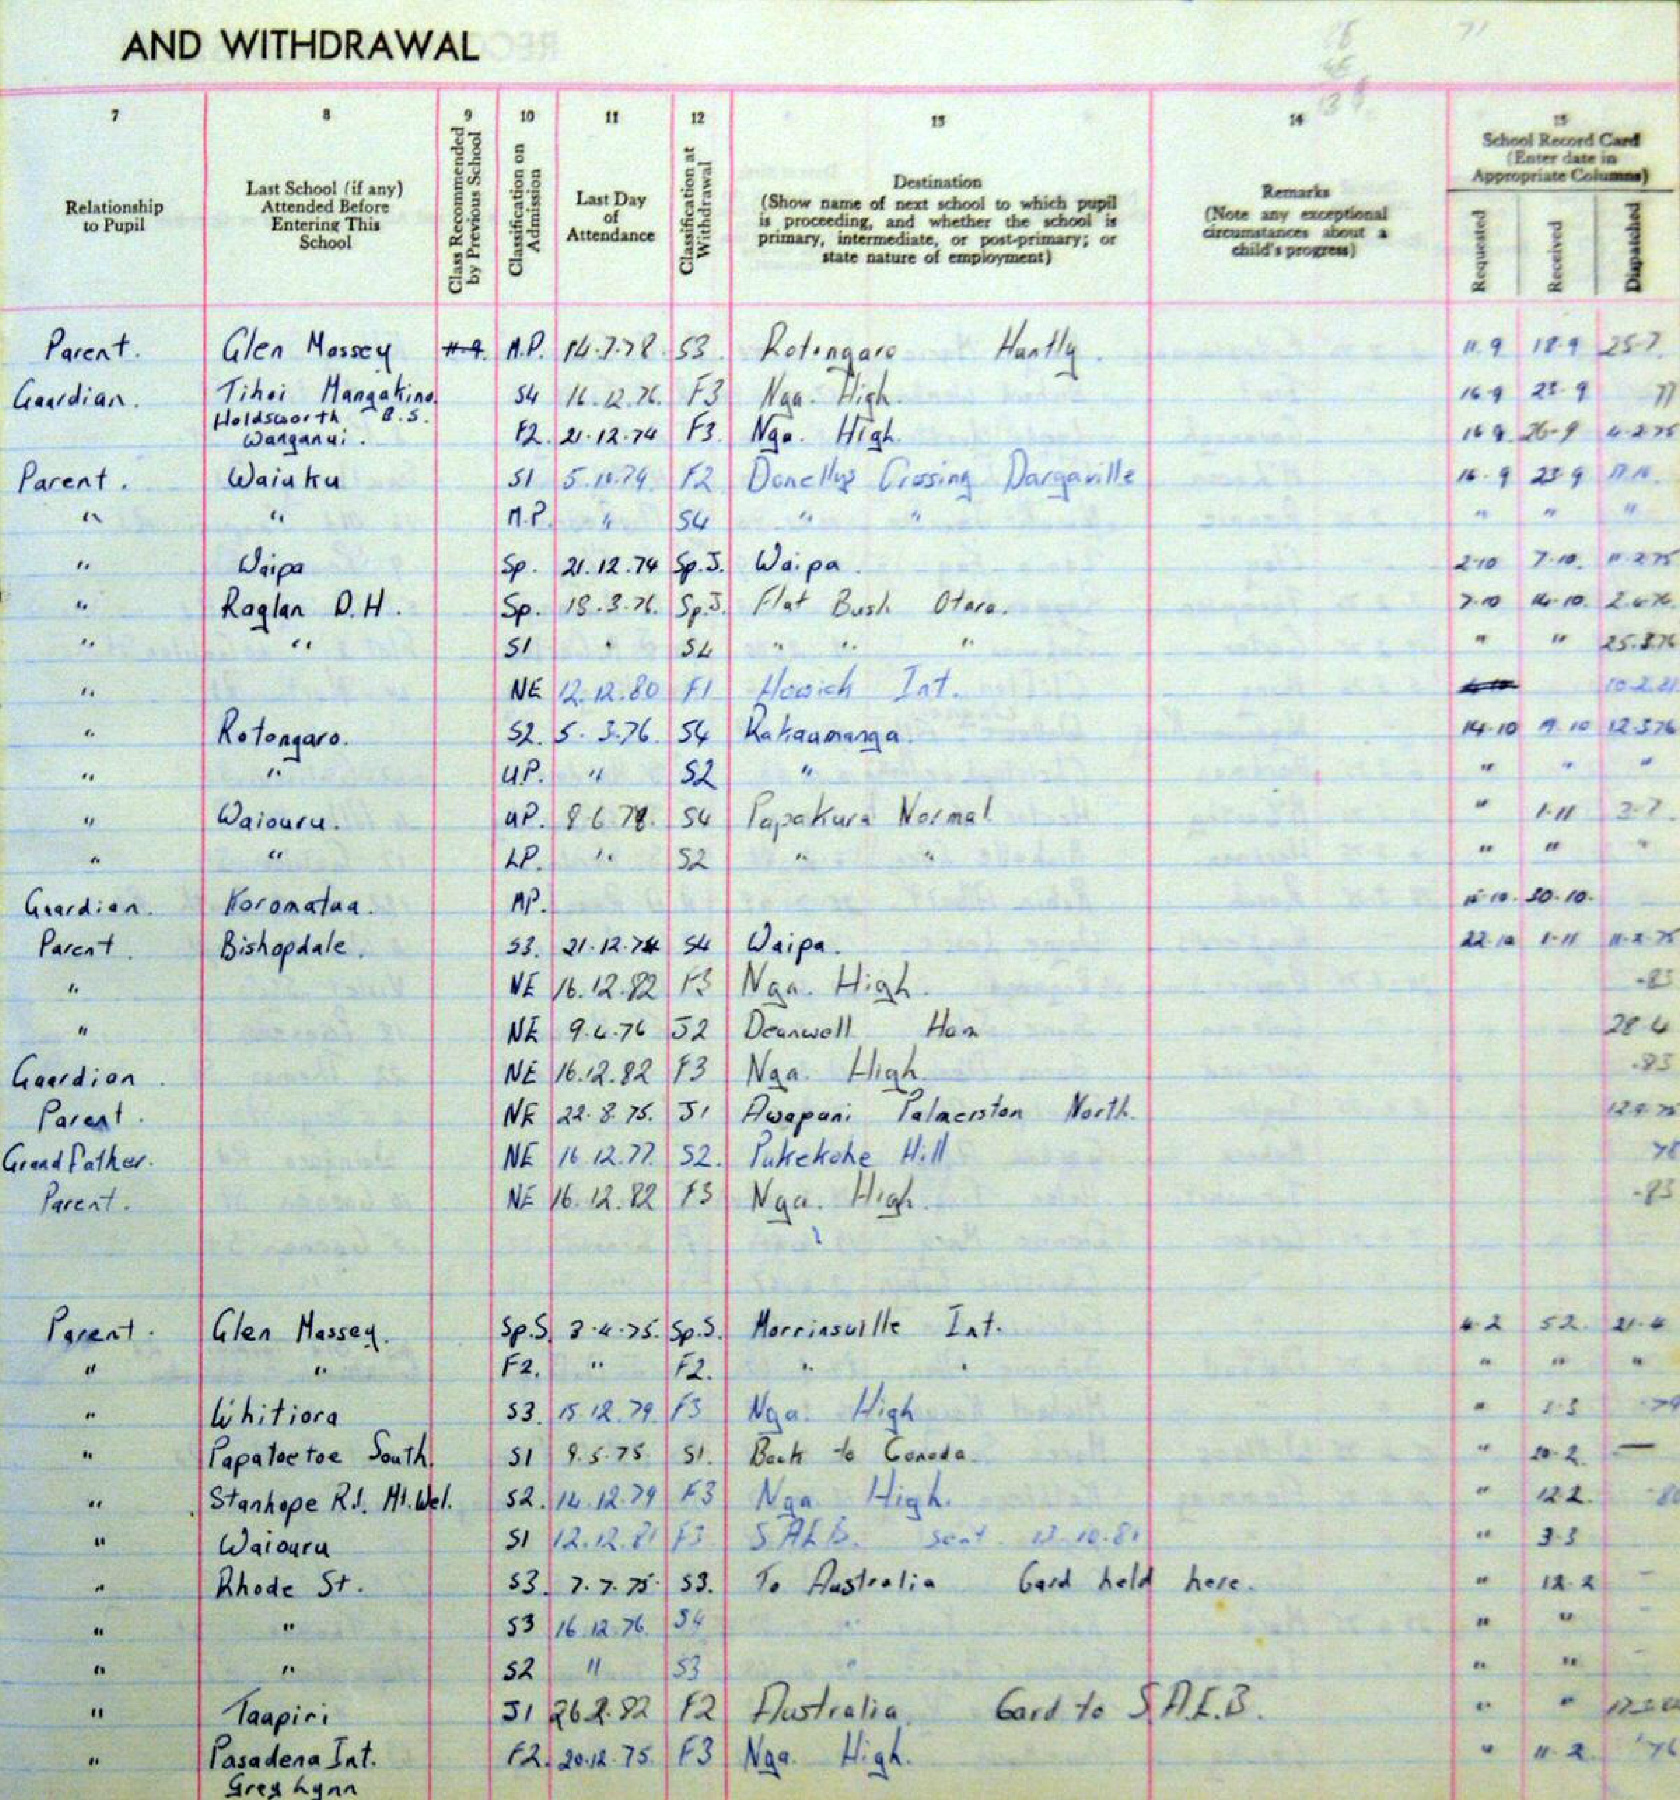 AND WITHDRAWAL
71
7 8 9 10 11 12 13 14 15
Relationship to Pupil
Last School (if any) Attended Before Entering This School
Class Recommended by Previous School
Classification on Admission
Last Day of Attendance
Classification at Withdrawal
Destination
(Show name of next school to which pupil is proceeding, and whether the school is primary, intermediate, or post-primary; or state nature of employment)
Remarks
(Note any exceptional circumstances about a child's progress)
School Record Card
(Enter date in Appropriate Columns)
Requested Received Dispatched
Parent. Glen Massey M.P. 14.7.78 S3 Rotongaro Huntly. 11.9 18.9 25.7
Guardian. Tihoi Mangakino S4 16.12.76. F3 Nga. High. 16.9 23.9 77
Holdsworth B.S.
Wanganui. F2. 21.12.74 F3. Nga. High. 16.9 26-9 4.2.75
Parent. Waiuku S1 F2 Donellys Crossing Dargaville 16.9 23.9
" " M.P. " S4 " " " " "
" Waipa Sp. 21.12.74 Sp.J. Waipa. 2.10 7.10. 11.2.75
" Raglan D.H. Sp. 18.3.76. Sp.J. Flat Bush Otara. 7.10 14.10. 2.4.76
" " S1 " S4 " " " " " 25.3.76
" NE 12.12.80 F1 Howich Int. 10.2.81
" Rotongaro. S2. 5.3.76. S4 Rakaumanga. 14.10 12.3.76
" " U.P. " S2 " " " "
" Waiouru. UP. 8.6.78. S4 Papakura Normal " 1.11 3.7.
" " LP. " S2 " " " " "
Guardian. Koromatua. MP. 30.10.
Parent. Bishopdale. S3. 21.12.74 S4 Waipa. 22.10 1.11 11.2.75
" NE 16.12.82 F3 Nga. High. .83
" NE 9.4.76 J2 Deanwell Ham 28.4
Guardian. NE 16.12.82 F3 Nga. High. .83
Parent. NE 22.8.75. J1 Awapuni Palmerston North. 12.9.75
Grandfather. NE 16.12.77. S2. Pukekohe Hill 78
Parent. NE 16.12.82 F3 Nga. High. .83
Parent. Glen Massey. Sp.S. 3.4.75. Sp.S. Morrinsville Int. 4.2 5.2. 21.4
" " F2. " F2. " " " " "
" Whitiora S3. 15.12.79. F3 Nga. High " 79
" Papatoetoe South. S1 9.5.75 S1. Back to Canada. " 20.2. —
" Stanhope Rd. Mt. Wel. S2. 14.12.79 F3 Nga. High. " 12.2.
" Waiouru S1 12.12.81 F3 S.A.E.B. sent 13.10.81 " 3.3
" Rhode St. S3. 7.7.75. S3. To Australia Card held here. " 12.2 -
" " S3 16.12.76. S4 " " " -
" " S2 " S3 " " " -
" Taupiri J1 26.2.82 F2 Australia. Card to S.A.E.B. " "
" Pasadena Int. F2. 20.12.75. F3 Nga. High. " 11.2. '76
Grey Lynn